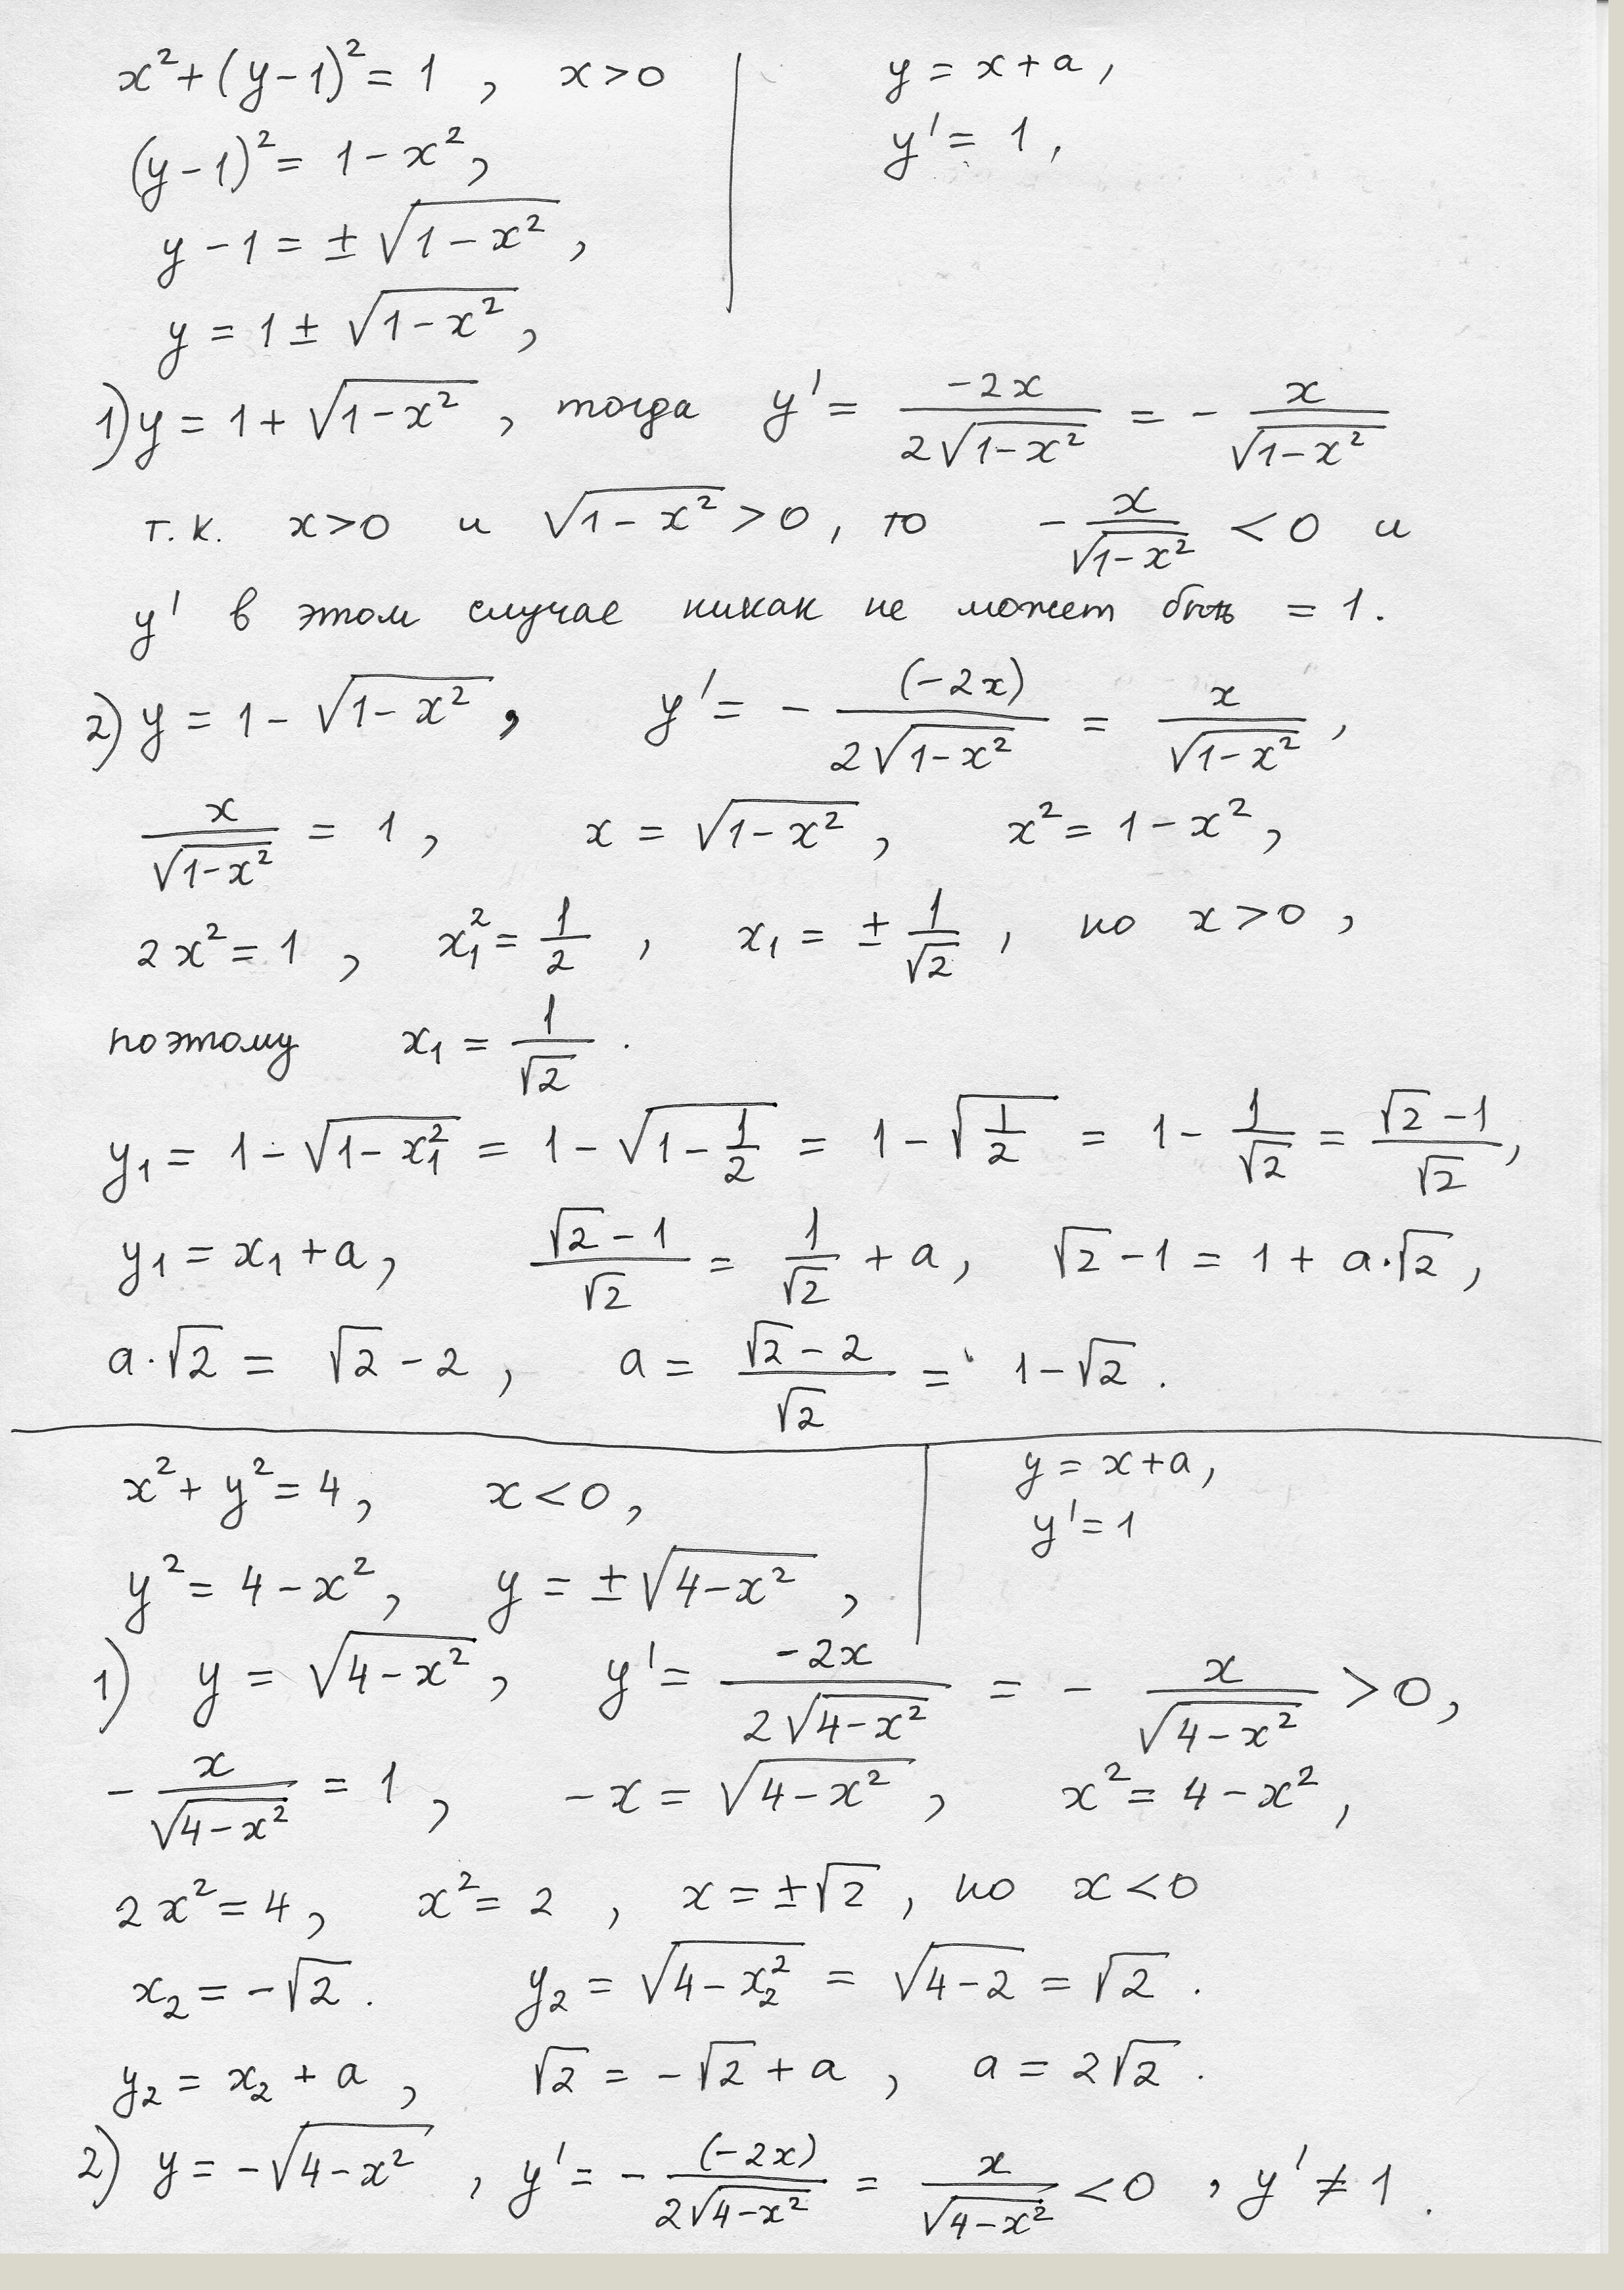 x²+(y-1)²=1, x>0
y=x+a,
(y-1)²=1-x²,
y'=1,
y-1=±√(1-x²),
y=1±√(1-x²),
1) y=1+√(1-x²), тогда y'=(-2x)/(2√(1-x²))=-x/√(1-x²)
т.к. x>0 и √(1-x²)>0, то -x/√(1-x²)<0 и
y' в этом случае никак не может быть =1.
2) y=1-√(1-x²), y'=-(-2x)/(2√(1-x²))=x/√(1-x²),
x/√(1-x²)=1, x=√(1-x²), x²=1-x²,
2x²=1, x₁²=1/2, x₁=±1/√2, но x>0,
поэтому x₁=1/√2.
y₁=1-√(1-x₁²)=1-√(1-1/2)=1-√(1/2)=1-1/√2=(√2-1)/√2,
y₁=x₁+a, (√2-1)/√2=1/√2+a, √2-1=1+a·√2,
a·√2=√2-2, a=(√2-2)/√2=1-√2.
x²+y²=4, x<0,
y=x+a,
y'=1
y²=4-x², y=±√(4-x²),
1) y=√(4-x²), y'=(-2x)/(2√(4-x²))=-x/√(4-x²)>0,
-x/√(4-x²)=1, -x=√(4-x²), x²=4-x²,
2x²=4, x²=2, x=±√2, но x<0
x₂=-√2. y₂=√(4-x₂²)=√(4-2)=√2.
y₂=x₂+a, √2=-√2+a, a=2√2.
2) y=-√(4-x²), y'=-(-2x)/(2√(4-x²))=x/√(4-x²)<0, y'≠1.